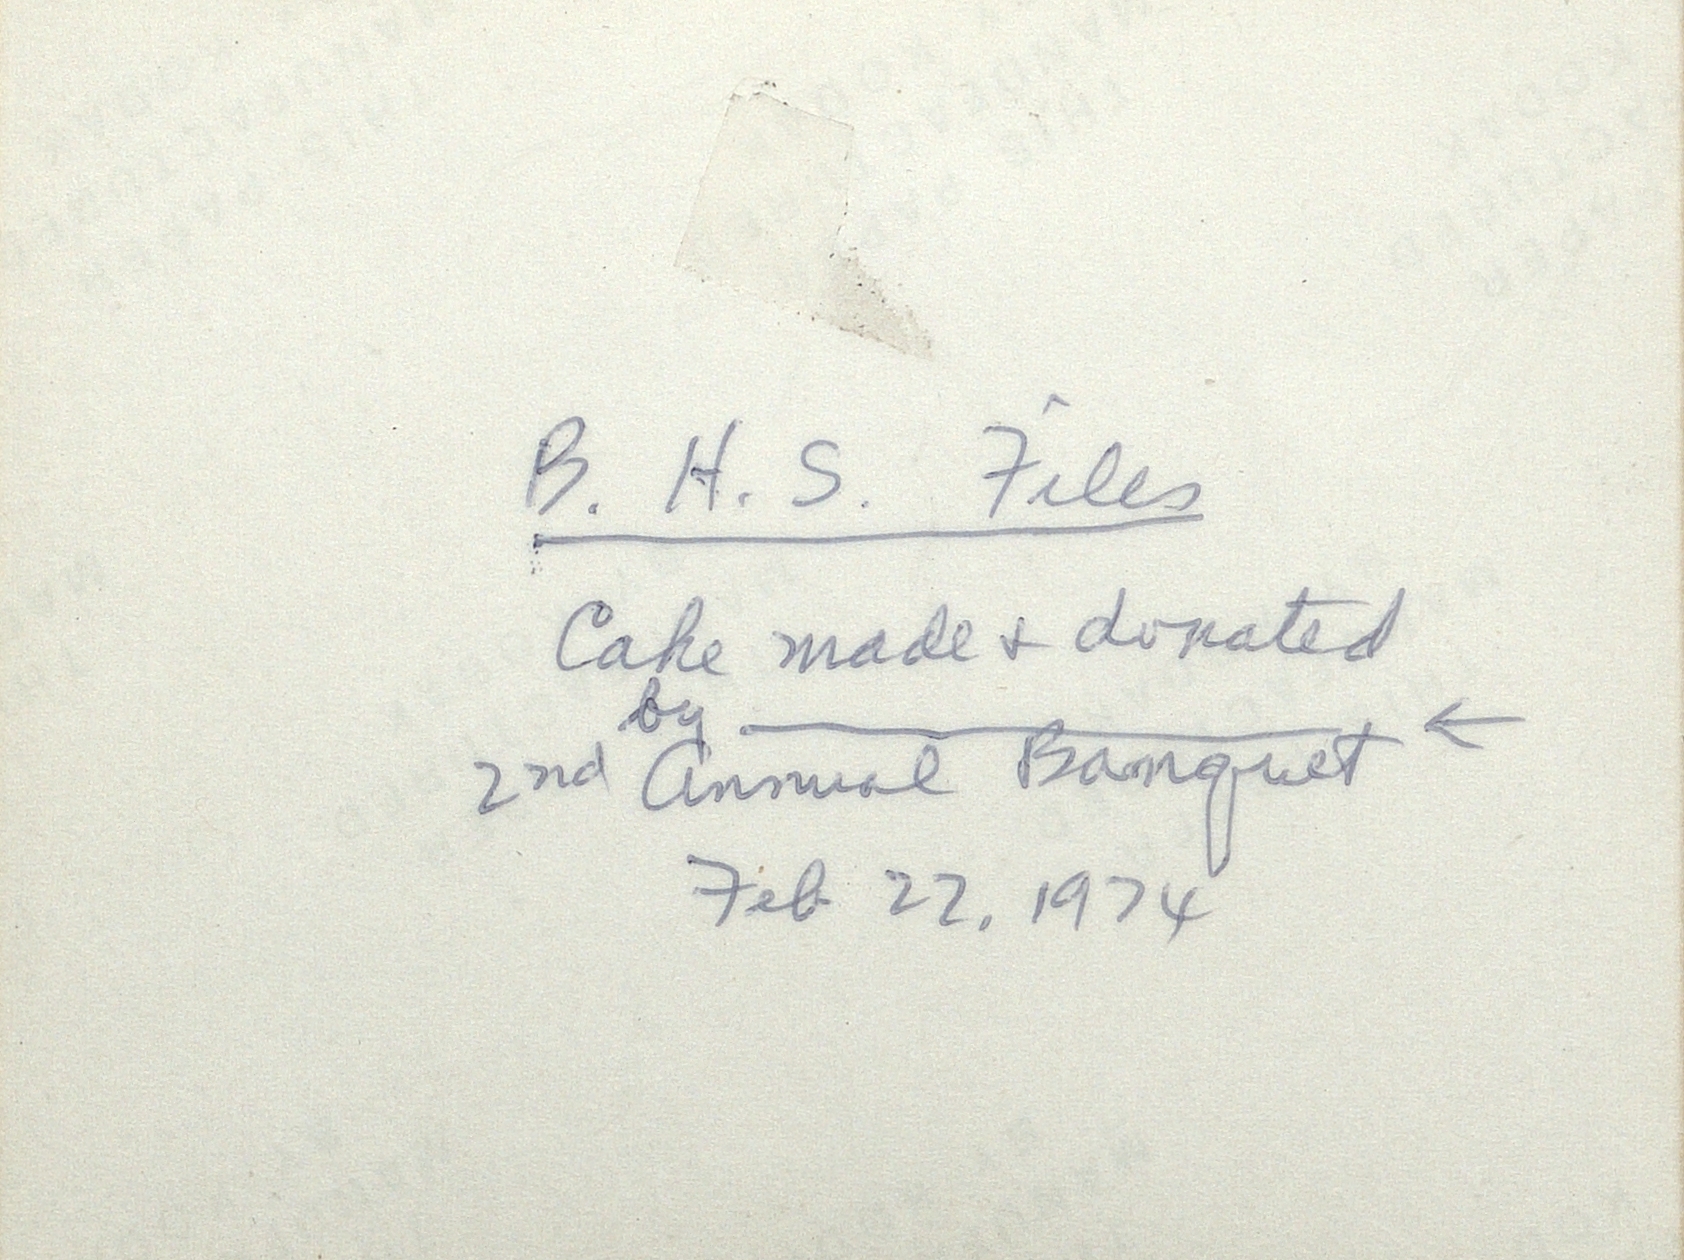 B. H. S. Files
Cake made & donated
by ____________ ←
2nd Annual Banquet
Feb 22, 1974